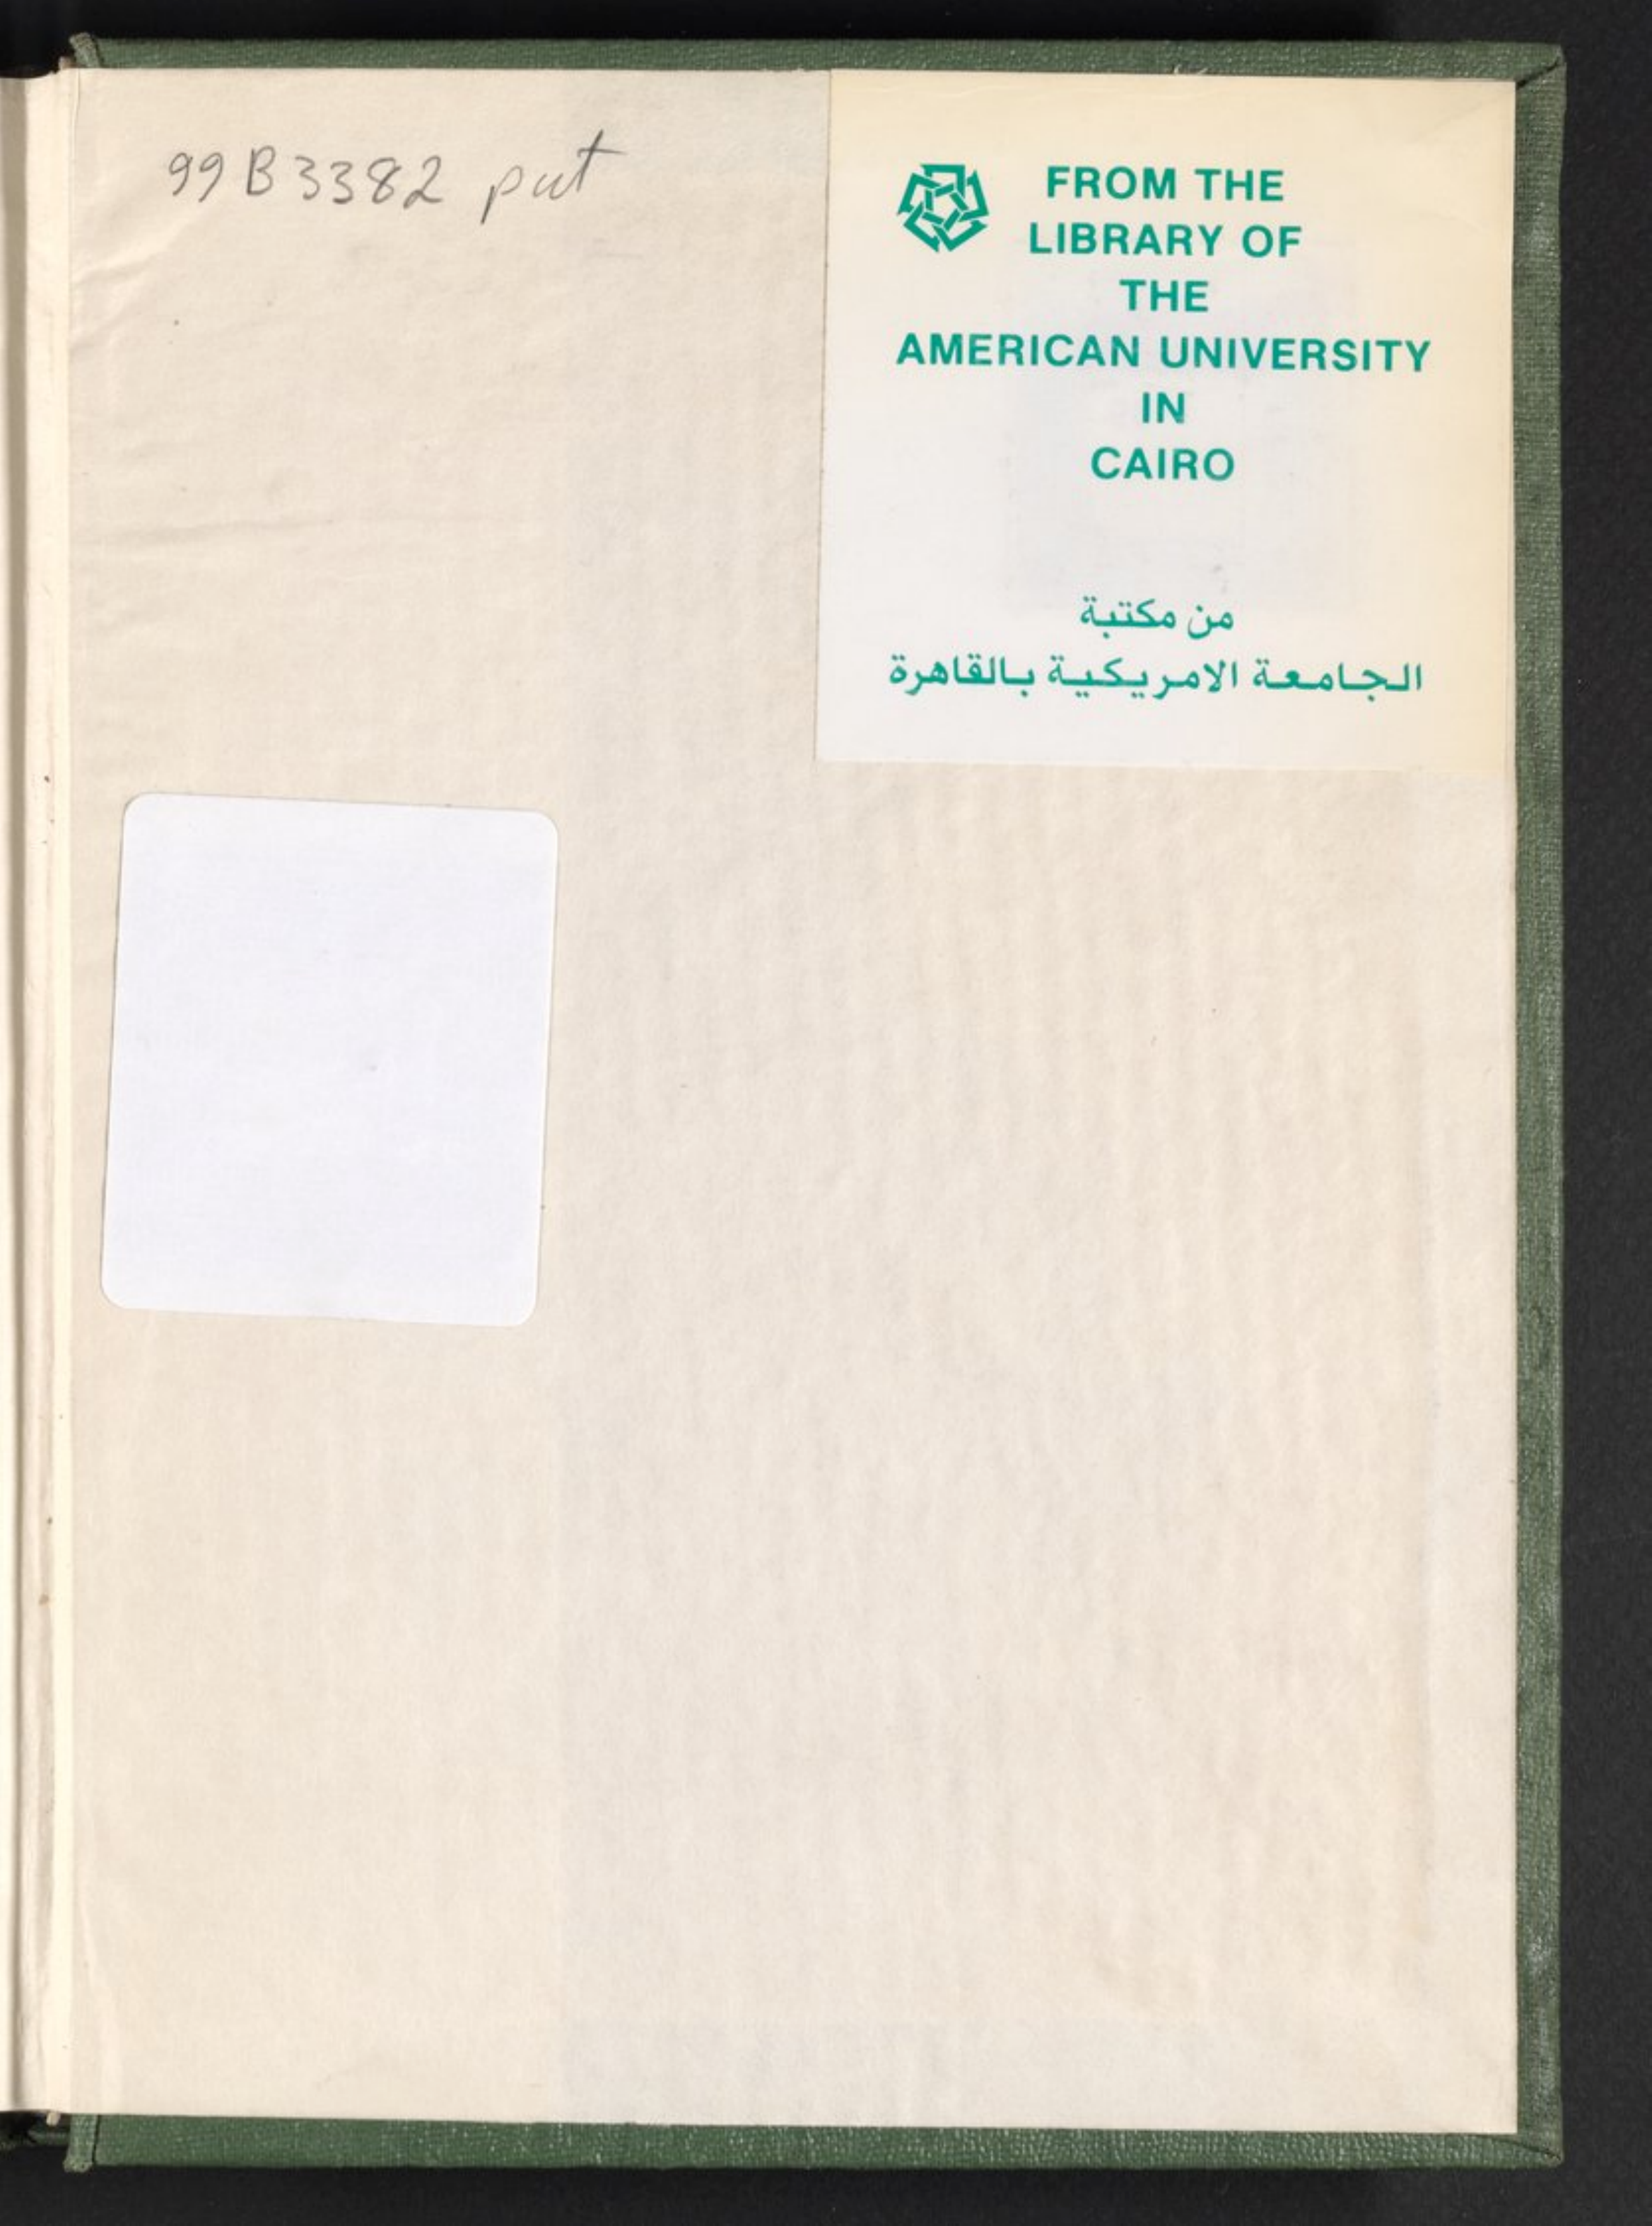 99 B 3382 put
FROM THE
LIBRARY OF
THE
AMERICAN UNIVERSITY
IN
CAIRO
من مكتبة
الجامعة الامريكية بالقاهرة